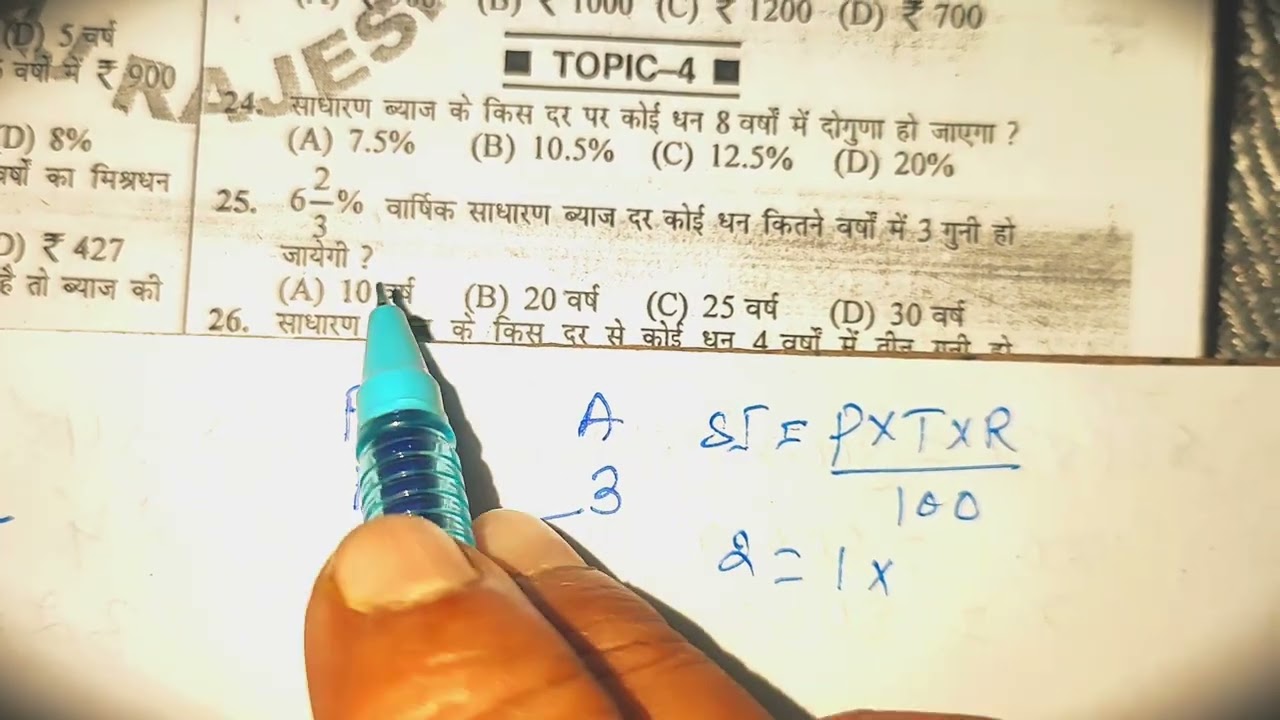 (B) ₹ 1000 (C) ₹ 1200 (D) ₹ 700
(D) 5 वर्ष
वर्षों में ₹ 900
D) 8%
का मिश्रधन
₹ 427
है तो ब्याज की
RAJES
■ TOPIC–4 ■
24. साधारण ब्याज के किस दर पर कोई धन 8 वर्षों में दोगुणा हो जाएगा ?
(A) 7.5% (B) 10.5% (C) 12.5% (D) 20%
25. 6 2/3 % वार्षिक साधारण ब्याज दर कोई धन कितने वर्षों में 3 गुनी हो
जायेगी ?
(A) 10 वर्ष (B) 20 वर्ष (C) 25 वर्ष (D) 30 वर्ष
26. साधारण के किस दर से कोई धन 4 वर्षों में तीन गुनी हो
A
3
SI = P×T×R
100
2 = 1 ×